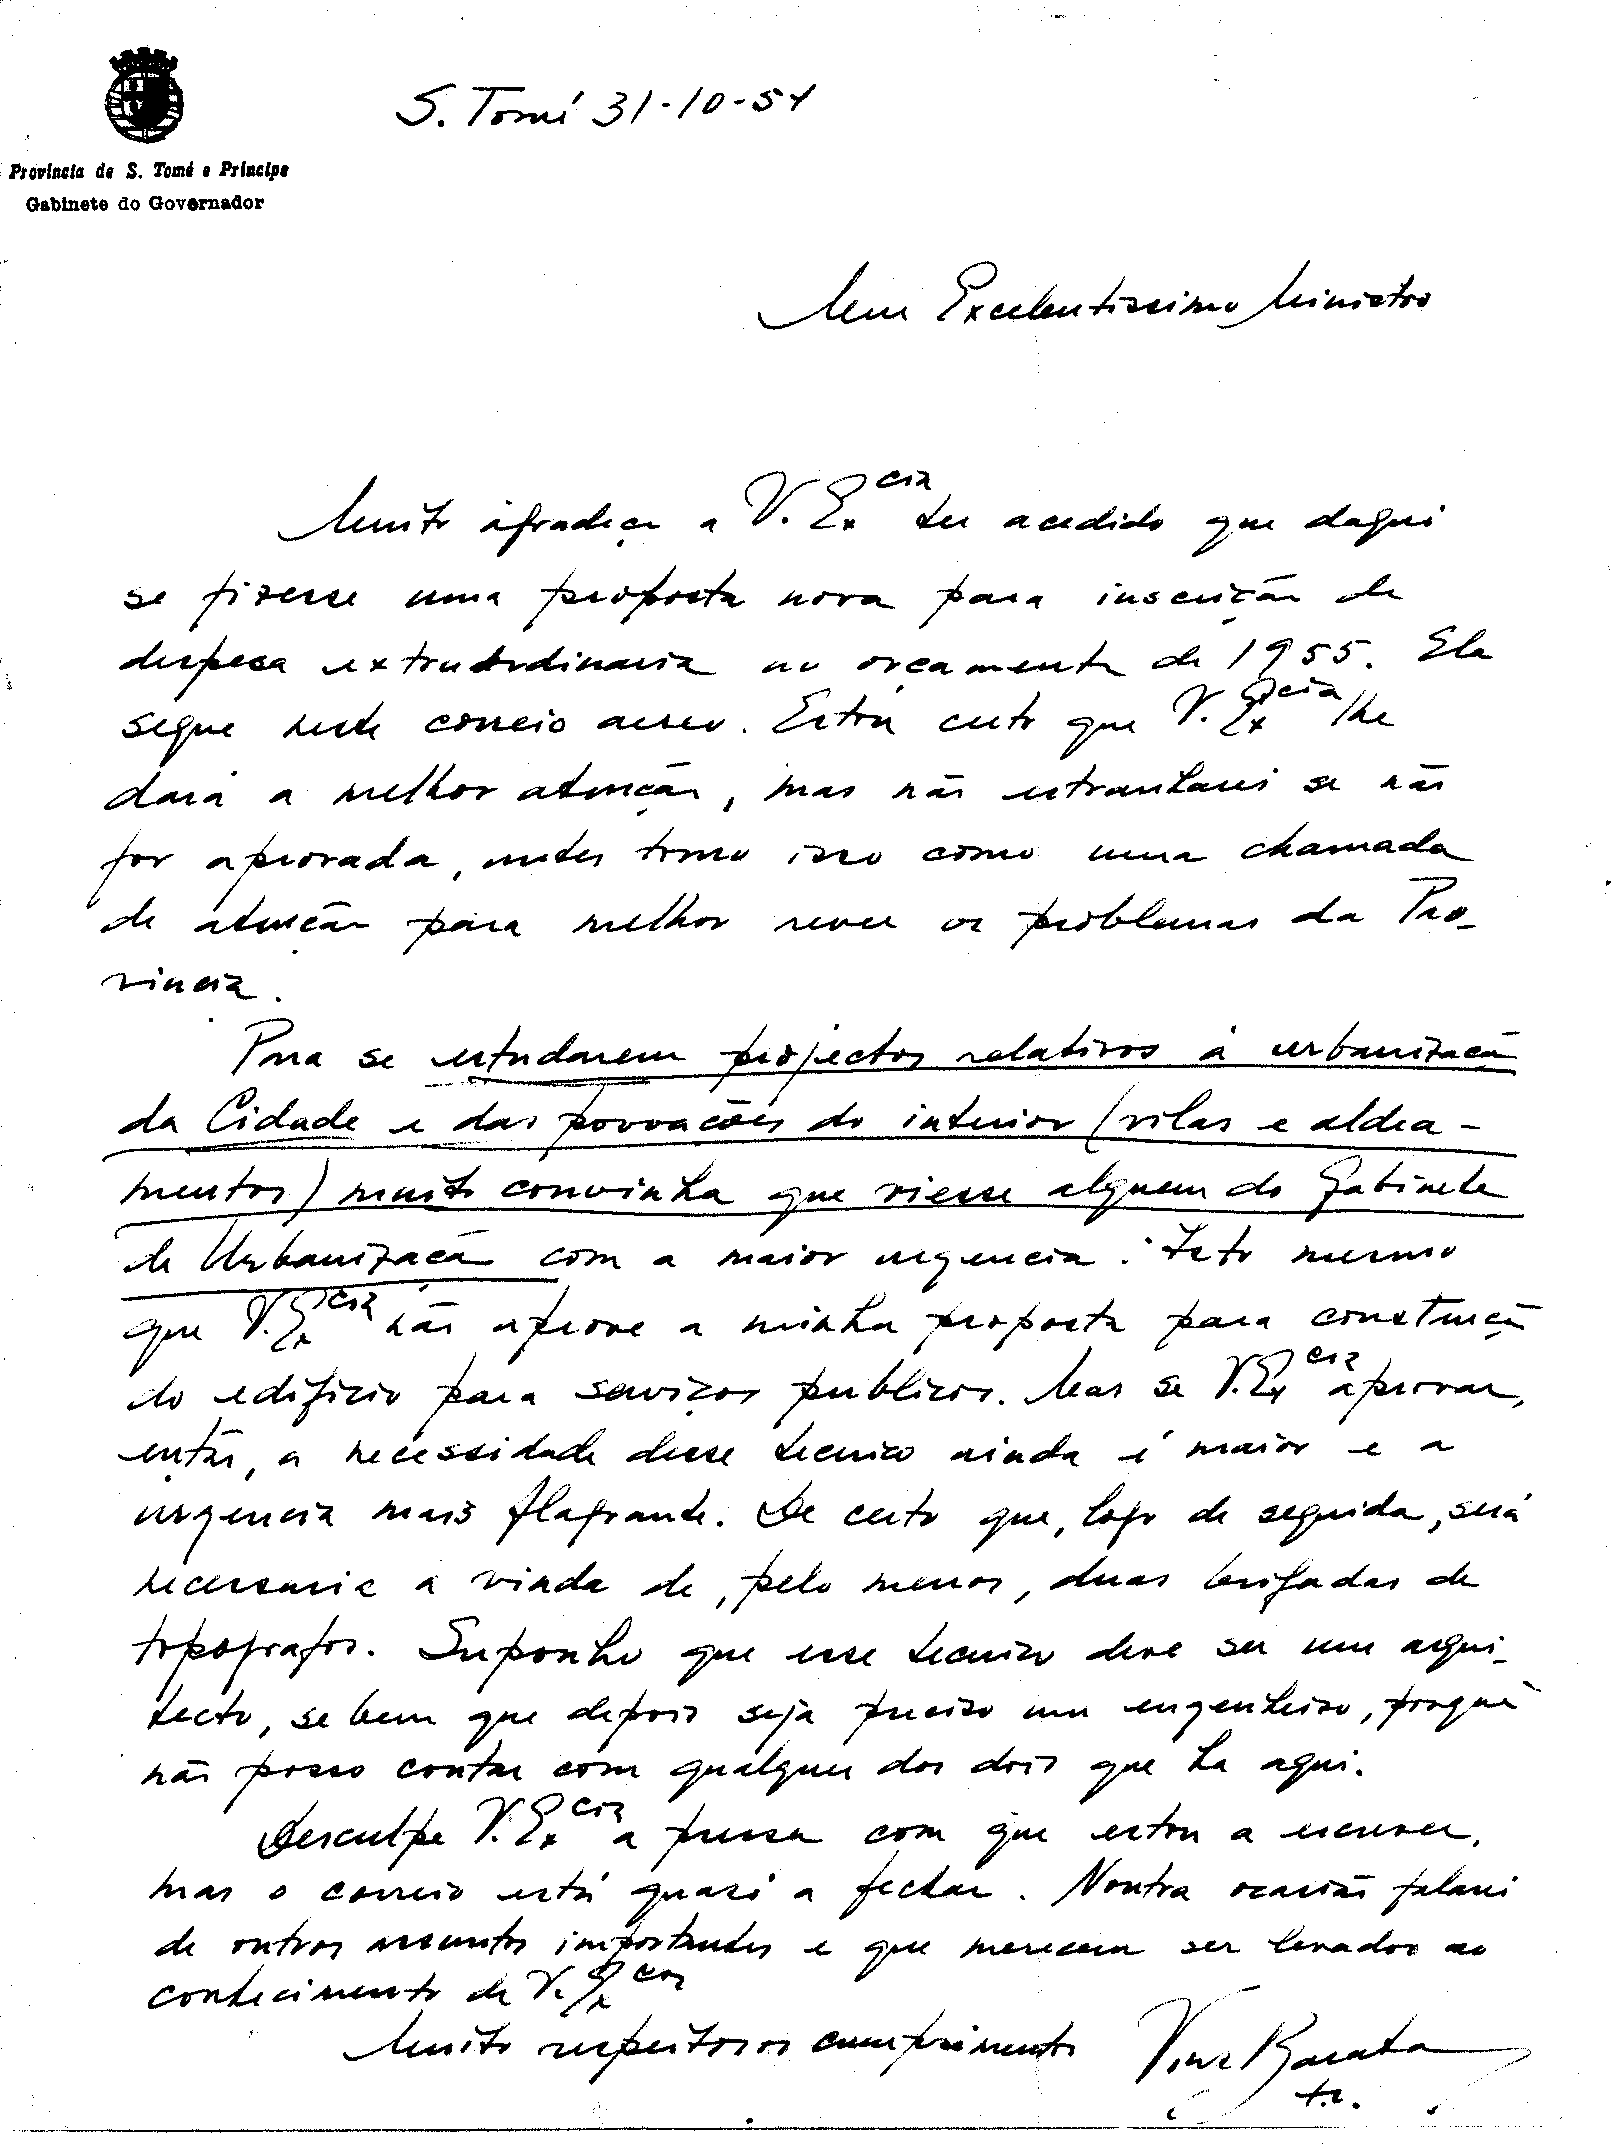 S. Tomé 31-10-54
Provincia de S. Tomé e Príncipe
Gabinete do Governador
Meu Excelentissimo Ministro
Muito agradeço a V. Ex.cia ter acedido que daqui
se fizesse uma proposta nova para inscrição de
despesa extraordinaria no orçamento de 1955. Ela
segue neste correio aereo. Estou certo que V. Ex.cia lhe
dará a melhor atenção, mas não estranharei se não
for aprovada, antes tomo isso como uma chamada
de atenção para melhor rever os problemas da Pro-
vincia.
Para se estudarem projectos relativos á urbanização
da Cidade e das povoações do interior (vilas e aldea-
mentos) muito convinha que viesse alguem do Gabinete
de Urbanização com a maior urgencia. Isto mesmo
que V. Ex.cia não aprove a minha proposta para construção
do edificio para serviços publicos. Mas se V. Ex.cia aprovar,
então, a necessidade desse tecnico ainda é maior e a
urgencia mais flagrante. De certo que, logo de seguida, será
necessaria a vinda de, pelo menos, duas brigadas de
topografos. Suponho que esse tecnico deve ser um arqui-
tecto, se bem que depois seja preciso um engenheiro, porque
não posso contar com qualquer dos dois que ha aqui.
Desculpe V. Ex.cia a pressa com que estou a escrever,
mas o correio está quasi a fechar. Noutra ocasião falarei
de outros assuntos importantes e que merecem ser levados ao
conhecimento de V. Ex.cia
Muito respeitosos cumprimentos
Vaz Barata